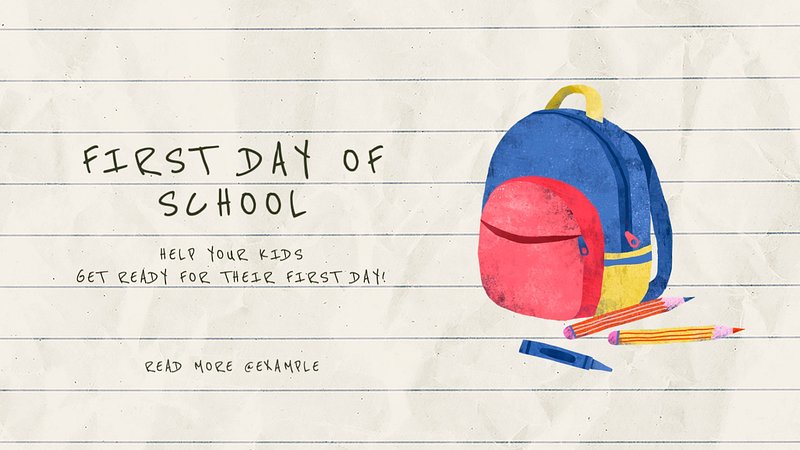 FIRST DAY OF
SCHOOL
HELP YOUR KIDS
GET READY FOR THEIR FIRST DAY!
READ MORE @EXAMPLE